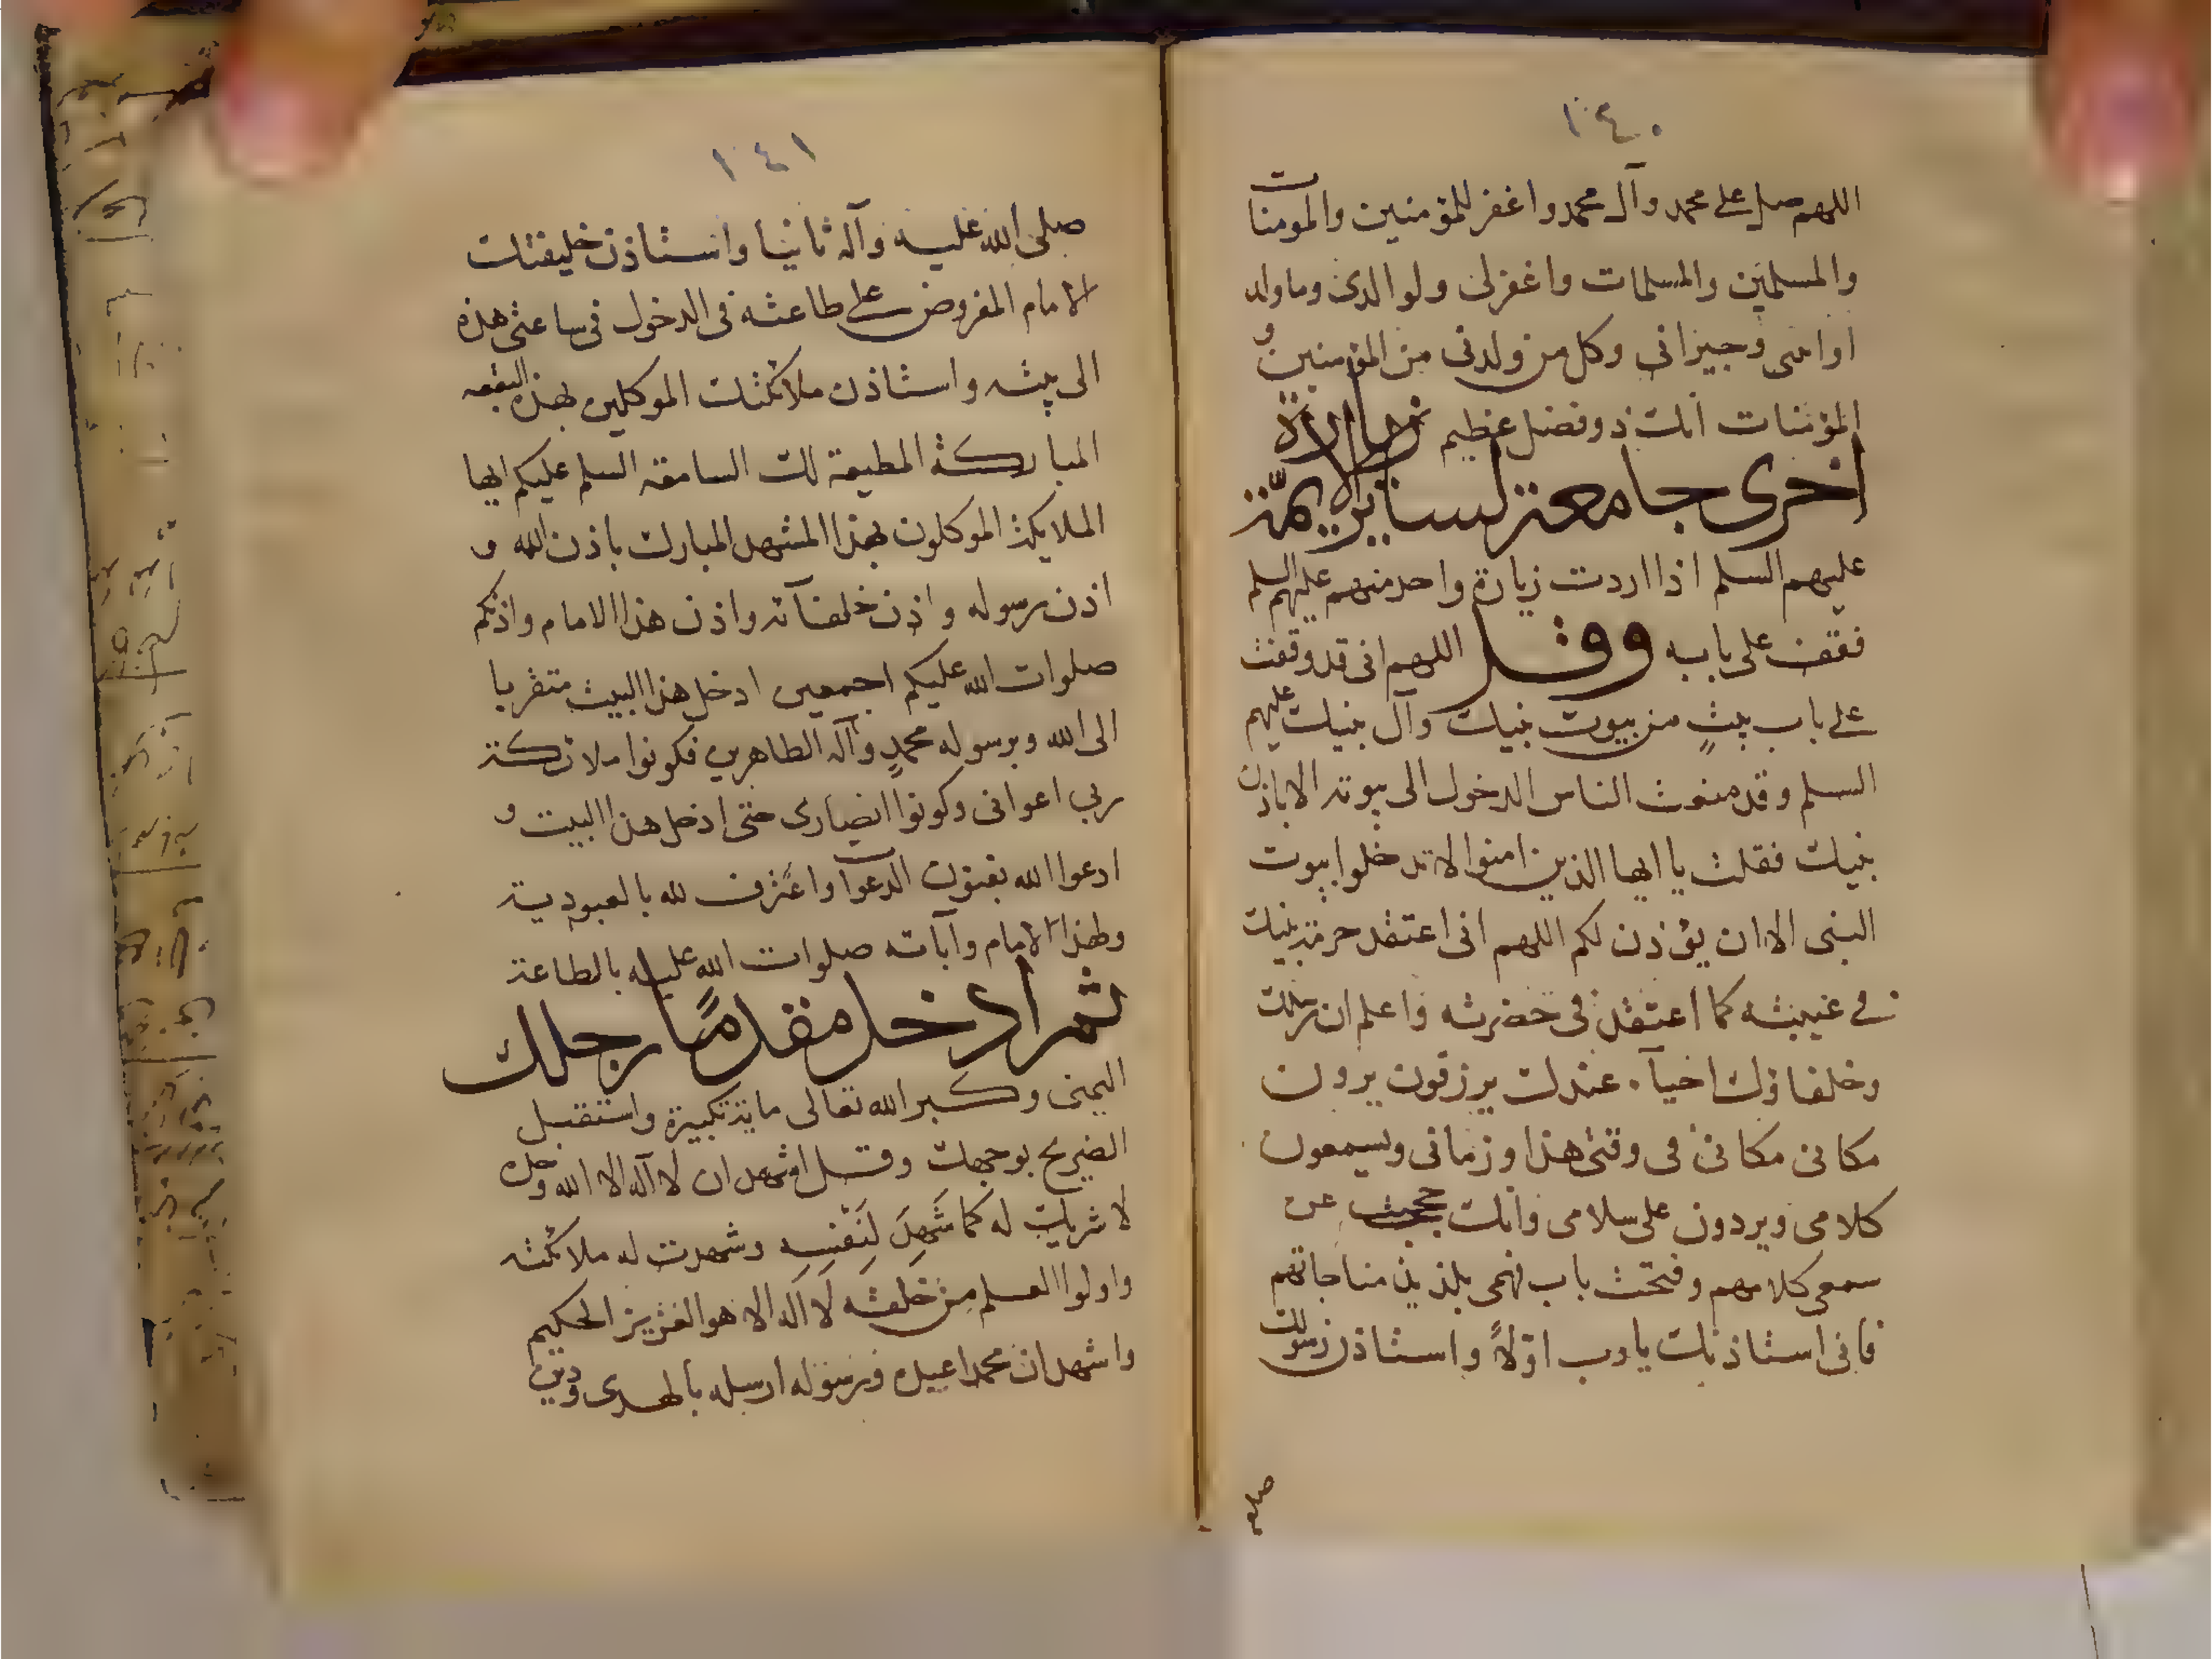 ١٤٠
اللهم صل على محمد وآل محمد واغفر للمؤمنين والمومنات
والمسلمين والمسلمات واغفرلى ولوالدى وما ولد
اوامى وجيرانى وكل من ولدنى من المؤمنين و
المؤمنات انك ذو فضل عظيم زيارة
اخرى جامعة لساير الايمّة
عليهم السلم اذا اردت زيارة واحد منهم عليهم السلم
فقف على بابه وقل اللهم انى قد وقفت
على باب بيتٍ من بيوت نبيك وآل نبيك عليهم
السلم وقد منعت الناس الدخول الى بيوته الا باذن
نبيك فقلت يا ايها الذين امنوا لا تدخلوا بيوت
النبى الا ان يؤذن لكم اللهم انى اعتقد حرمة نبيك
فى غيبته كما اعتقد فى حضرته واعلم ان رسلك
وخلفاؤك احيآء عندك يرزقون يرون
مكانى مكانى فى وقتى هذا وزمانى ويسمعون
كلامى ويردون على سلامى وانك حجبت عن
سمعى كلامهم وفتحت باب فهمى بلذيذ مناجاتهم
فانى استاذنك يا رب اوّلاً واستاذن رسولك
صلى
١٤١
صلى الله عليه وآله ثانيا واستاذن خليفتك
الامام المفروض على طاعته فى الدخول فى ساعتى هذه
الى بيته واستاذن ملائكتك الموكلين بهذه البقعه
المباركة المطيعة لك السامعة السلم عليكم ايها
الملايكة الموكلون بهذا المشهد المبارك باذن الله و
اذن رسوله واذن خلفآئه واذن هذا الامام واذنكم
صلوات الله عليكم اجمعين ادخل هذا البيت متقربا
الى الله وبرسوله محمدٍ وآله الطاهرين فكونوا ملائكة
ربى اعوانى وكونوا انصارى حتى ادخل هذا البيت و
ادعوا الله بفنون الدعوات واعترف لله بالعبودية
ولهذا الامام وآبائه صلوات الله عليه بالطاعة
ثم ادخل مقدمًا رجلك
اليمنى وكبر الله تعالى ماية تكبيرة واستقبل
الضريح بوجهك وقل اشهد ان لا آله الا الله وحده
لا شريك له كما شَهِدَ لِنَفْسِهِ وشهدت له ملائكته
واولوا العلم من خلقه لا آله الا هو العزيز الحكيم
واشهد ان محمدا عبده ورسوله ارسله بالهدى ودين